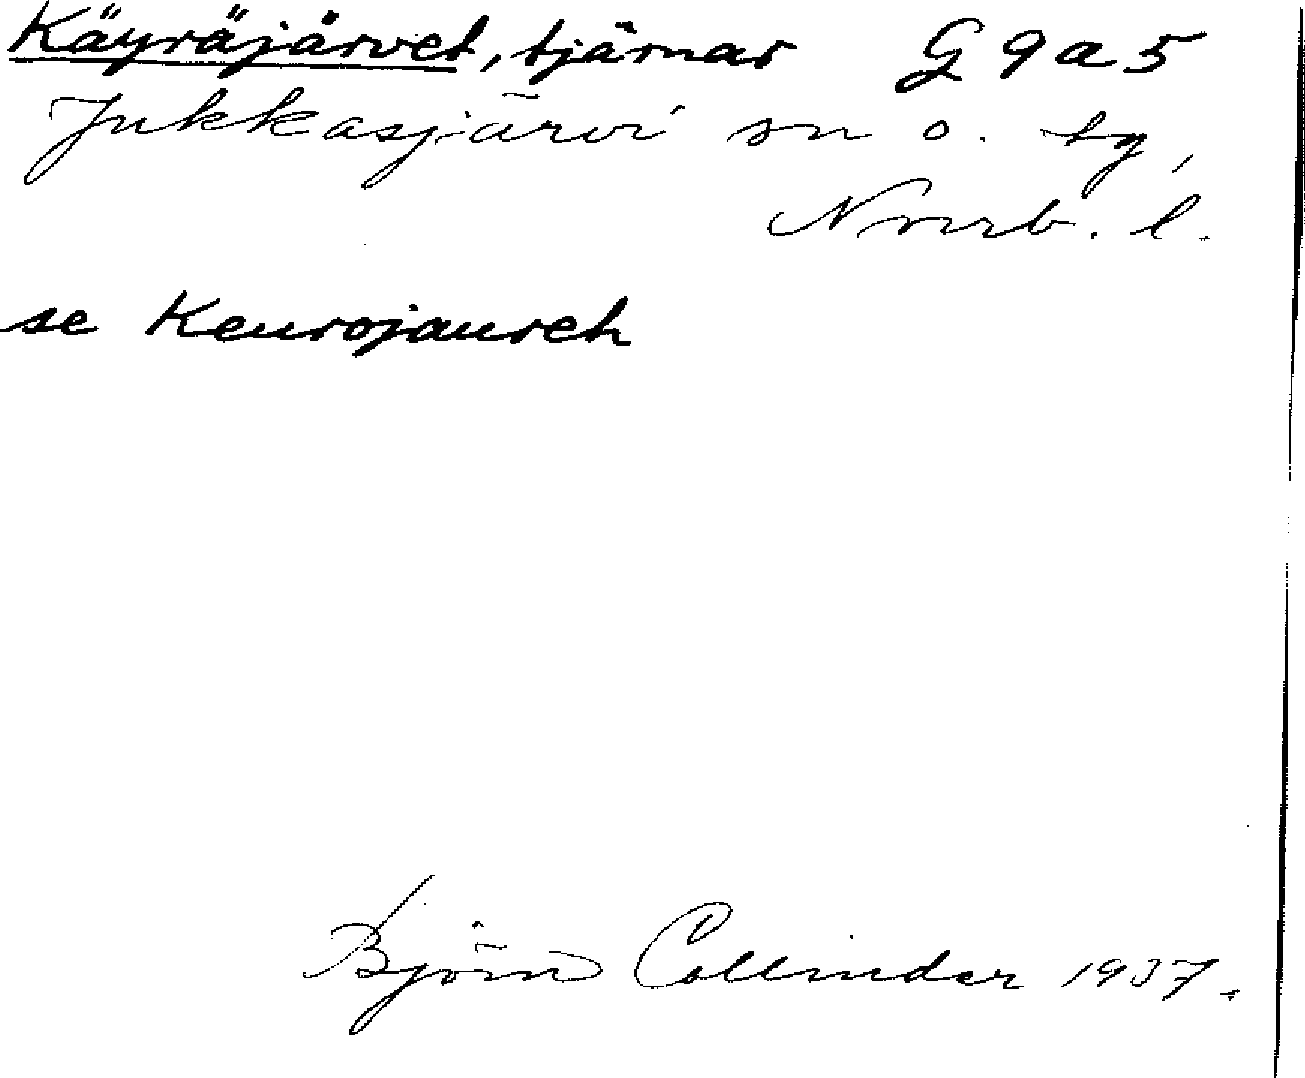 Käyräjärvet, tjärnar G 9 a 5
Jukkasjärvi sn o. tg,
Norrb. l.
se Keurojaureh
Björn Collinder 1937.